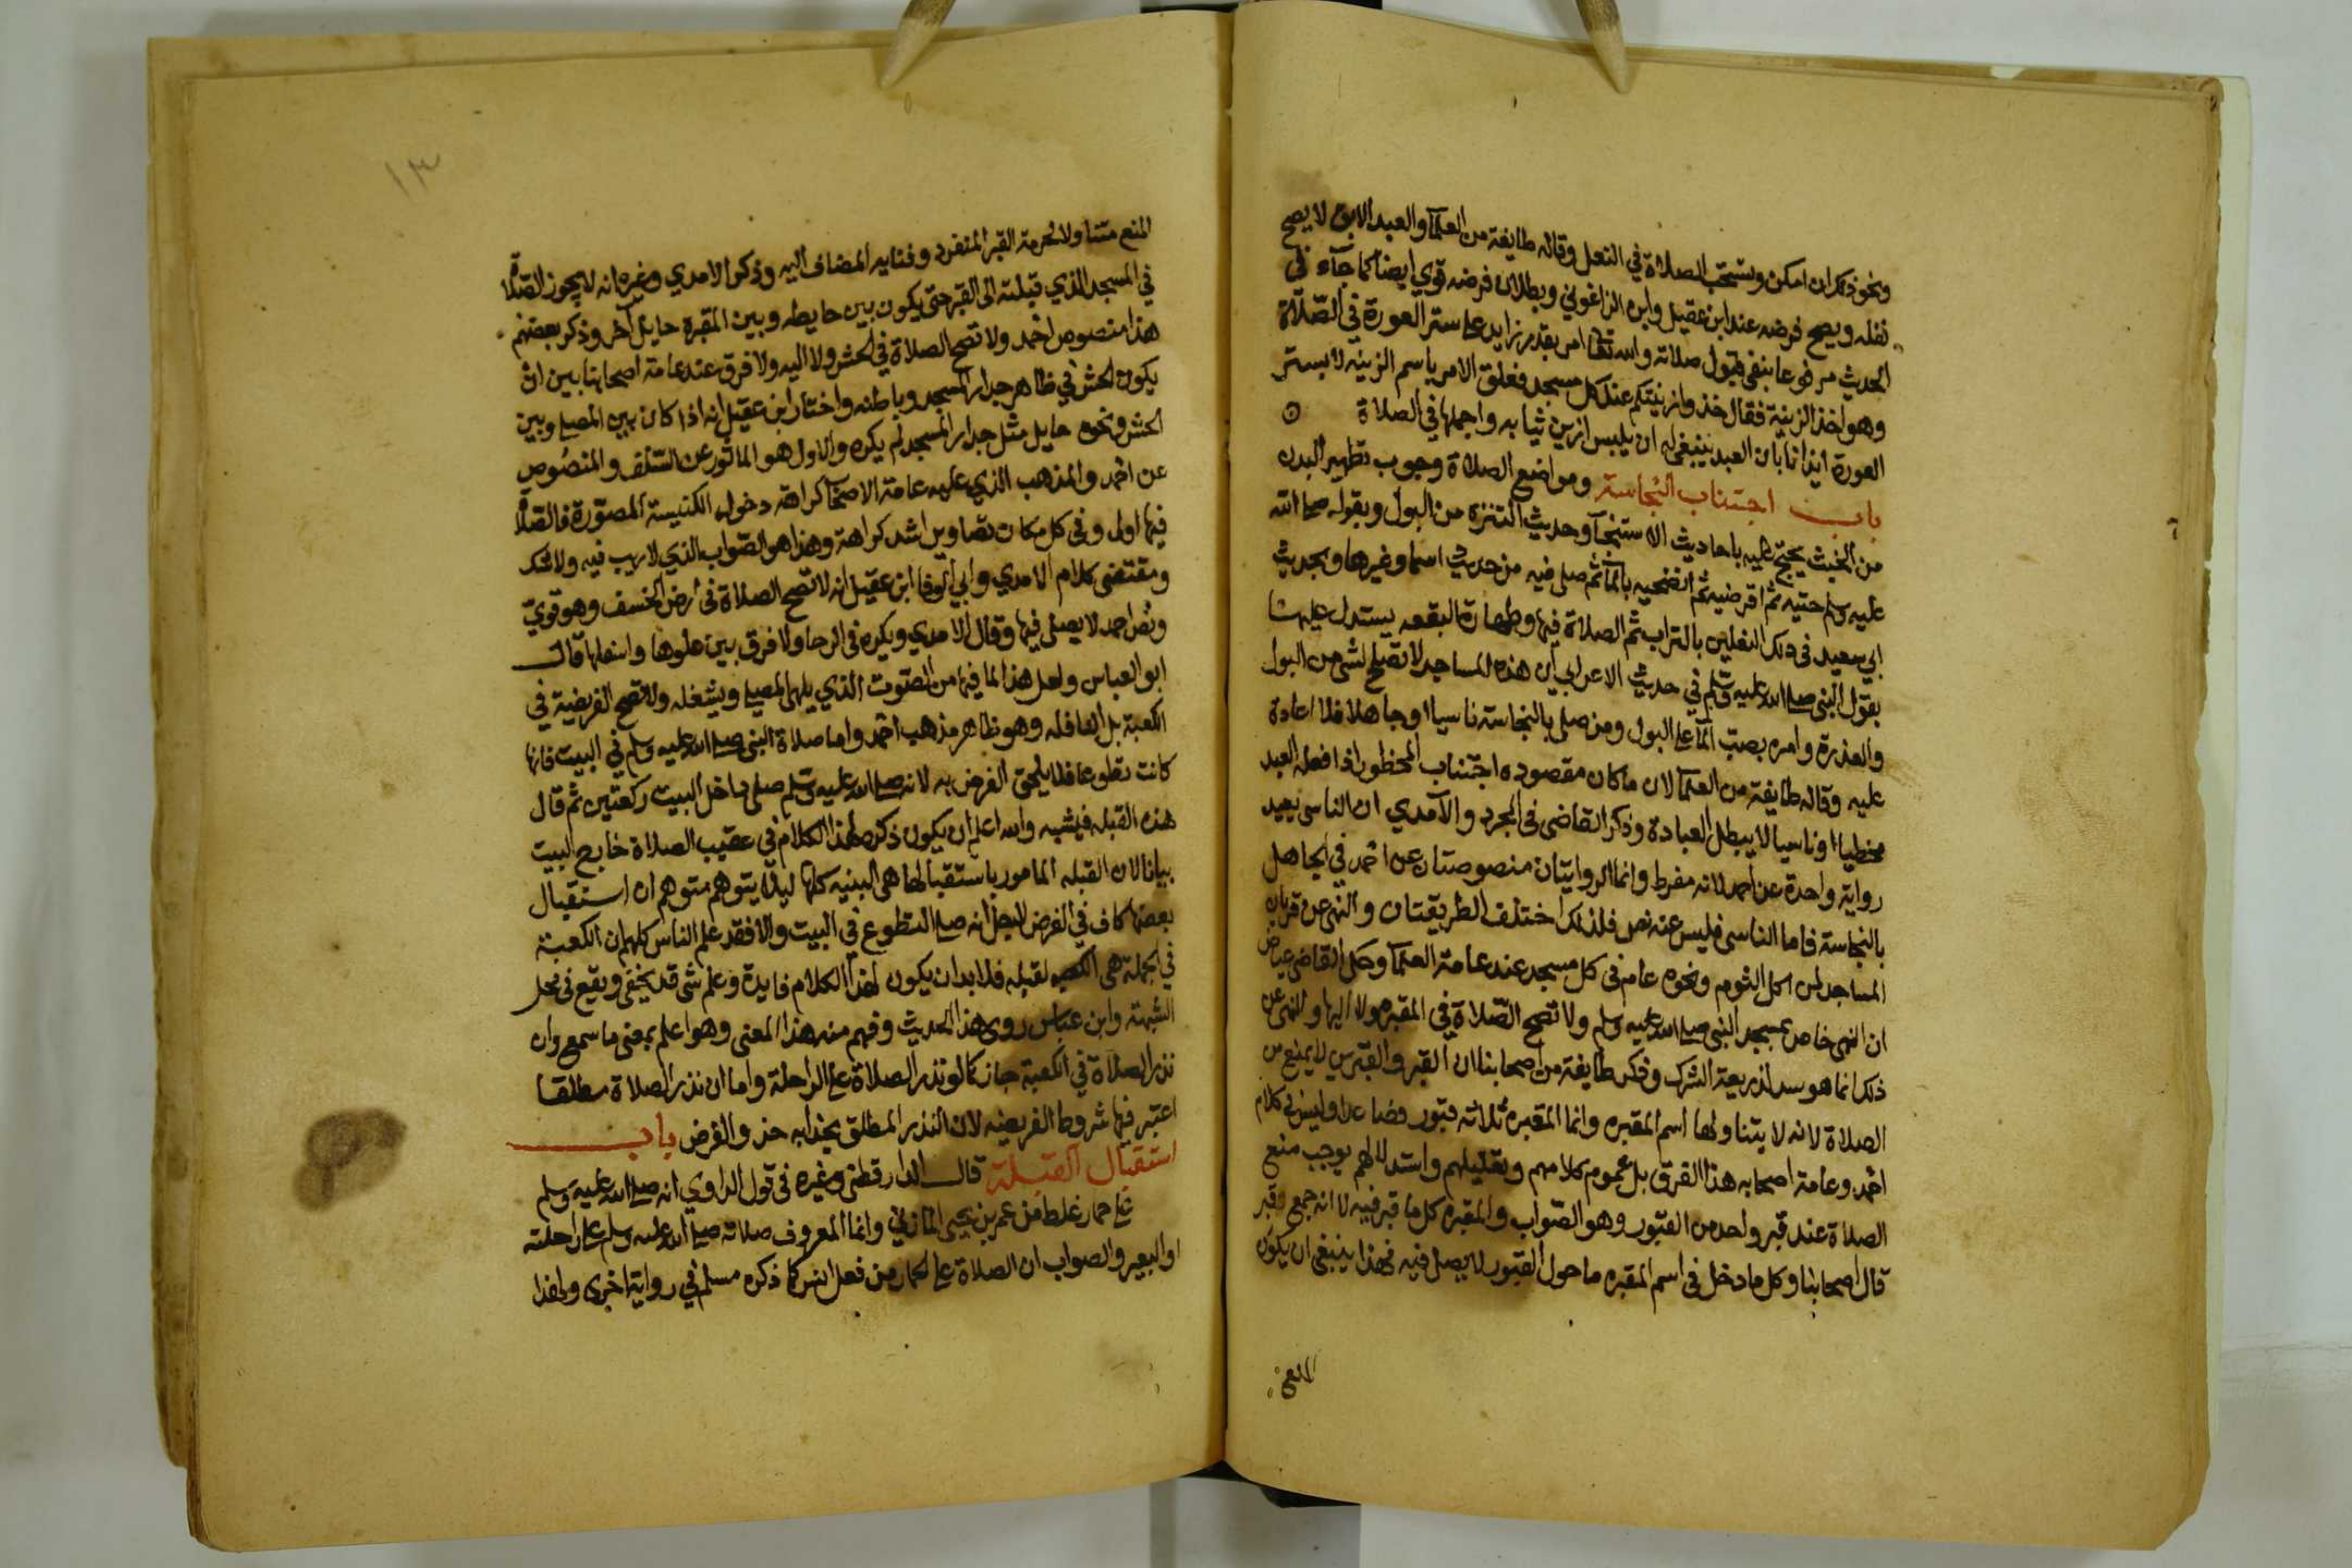 ونحو ذلك ان امكن ويستحب الصلاة في النعل وقاله طايفة من العلمآ والعبد الابق لا يصح
نفله ويصح فرضه عند ابن عقيل وابن الزاغوني وبطلان فرضه قوي ايضا كما جآء في
الحديث مرفوعا بنفي قبول صلاته والله تعالى امر بقدر زايد على ستر العورة في الصّلاة
وهو اخذ الزينة فقال خذوا زينتكم عند كل مسجد فعلق الامر باسم الزينه لا بستر
العورة ايذانا بان العبد ينبغي له ان يلبس ازين ثيابه واجملها في الصلاة
باب اجتناب النجاسة ومواضع الصلاة وجوب تطهير البدن
من الخبث يحتج عليه باحاديث الاستنجآ وحديث التنزه من البول وبقوله صلى الله
عليه وسلم حتيه ثم اقرضيه ثم انضحيه بالمآ ثم صلى فيه من حديث اسما وغيرها وبحديث
ابي سعيد في دلك النعلين بالتراب ثم الصلاة فيها وطهارة البقعه يستدل عليها
بقول النبي صلى الله عليه وسلم في حديث الاعرابي ان هذه المساجد لا تصلح لشي من البول
والعذرة وامره بصب المآ على البول ومن صلى بالنجاسة ناسيا او جاهلا فلا اعادة
عليه وقاله طايفة من العلما لان ما كان مقصوده اجتناب المحظور اذا فعله العبد
مخطيا او ناسيا لا يبطل العبادة وذكر القاضى في المجرد والآمدي ان الناسى يعيد
رواية واحدة عن احمد لانه مفرط وانما الروايتان منصوصتان عن احمد في الجاهل
بالنجاسة فاما الناسى فليس عنه نص فلذلك اختلف الطريقتان والنهى عن قربان
المساجد لمن اكل الثوم ونحوه عام في كل مسجد عند عامة العلمآ وحكى القاضى عياض
ان النهى خاص بمسجد النبى صلى الله عليه وسلم ولا تصح الصّلاة في المقبره ولا اليها والنهى عن
ذلك انما هو سد لذريعة الشرك وذكر طايفة من اصحابنا ان القبر والقبرين لا يمنع من
الصلاة لانه لا يتناولها اسم المقبره وانما المقبره ثلاثه قبور فصاعدا وليس في كلام
احمد وعامة اصحابه هذا الفرق بل عموم كلامهم وتعليلهم واستدلالهم يوجب منع
الصلاة عند قبر واحد من القبور وهو الصّواب والمقبره كل ما قبر فيه لا انه جمع قبر
قال اصحابنا وكل ما دخل في اسم المقبره ما حول القبور لا يصلى فيه فهذا ينبغى ان يكون
المنع
١٣
المنع متناولا لحرمة القبر المنفرد وفنايه المضاف اليه وذكر الامدي وغيره انه لا يجوز الصّلاة
في المسجد الذي قبلته الى القبر حتى يكون بين حايطه وبين المقبرة حايل آخر وذكر بعضهم
هذا منصوص احمد ولا تصح الصلاة في الحش ولا اليه ولا فرق عند عامة اصحابنا بين ان
يكون الحش في ظاهر جدار المسجد وباطنه واختار ابن عقيل انه اذا كان بين المصلى وبين
الحش ونحوه حايل مثل جدار المسجد لم يكره والاول هو الماثور عن السّلف والمنصوص
عن احمد والمذهب الذي عليه عامة الاصحاب كراهة دخول الكنيسة المصوّرة فالصّلاة
فيها اولى وفي كل مكان تصاوير اشد كراهة وهذا هو الصّواب الذي لا ريب فيه ولا شك
ومقتضى كلام الامدي وابي الوفا ابن عقيل انه لا تصح الصلاة في ارض الخسف وهو قويّ
ونص احمد لا يصلى فيها وقال الامدي ويكره في الرحا ولا فرق بين علوها واسفلها قال
ابو العباس ولعل هذا لما فيها من الصوت الذي يلهى المصلى ويشغله ولا تصح الفريضة في
الكعبة بل النافله وهو ظاهر مذهب احمد واما صلاة النبى صلى الله عليه وسلم في البيت فانها
كانت تطوعا فلا يلحق الفرض به لانه صلى الله عليه وسلم صلى داخل البيت ركعتين ثم قال
هذه القبله فيشبه والله اعلم ان يكون ذكره لهذا الكلام في عقيب الصلاة خارج البيت
بيانا لان القبله المامور باستقبالها هى البنيه كلها ليلا يتوهم متوهم ان استقبال
بعضها كاف في الفرض لاجل انه صلى التطوع في البيت والا فقد علم الناس كلهم ان الكعبة
في الجملة هى القبله فلا بد ان يكون لهذا الكلام فايدة وعلم شى قد يخفى ويقع في محل
الشبهة وابن عباس روى هذا الحديث وفهم منه هذا المعنى وهو اعلم بمعنى ما سمع وان
نذر الصلاة في الكعبة جاز كما لو نذر الصلاة على الراحلة واما ان نذر الصلاة مطلقا
اعتبر فيها شروط الفريضه لان النذر المطلق يحذا به حذو الفرض باب
استقبال القبلة قال الدارقطنى وغيره في قول الراوي انه صلى الله عليه وسلم
على حمار غلط من عمرو بن يحيى المازني وانما المعروف صلاته صلى الله عليه وسلم على راحلته
او البعير والصواب ان الصلاة على الحمار من فعل انس كما ذكره مسلم في رواية اخرى ولهذا